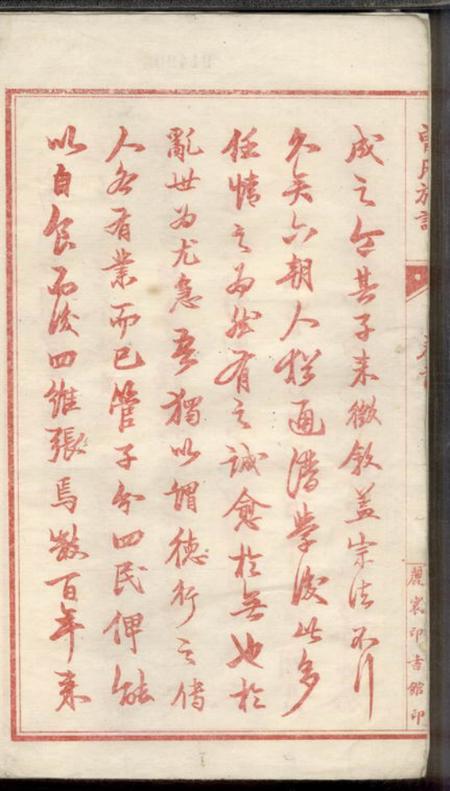 曾氏族譜
成之令其子来徵敘盖宗法不行
久矣六朝人猶通譜學後此多
任情之為然有之誠愈於無也於
亂世為尤急吾獨以謂德行之
人各有業而已管子分四民俾能
以自食而後四維張焉數百年来
印書館印